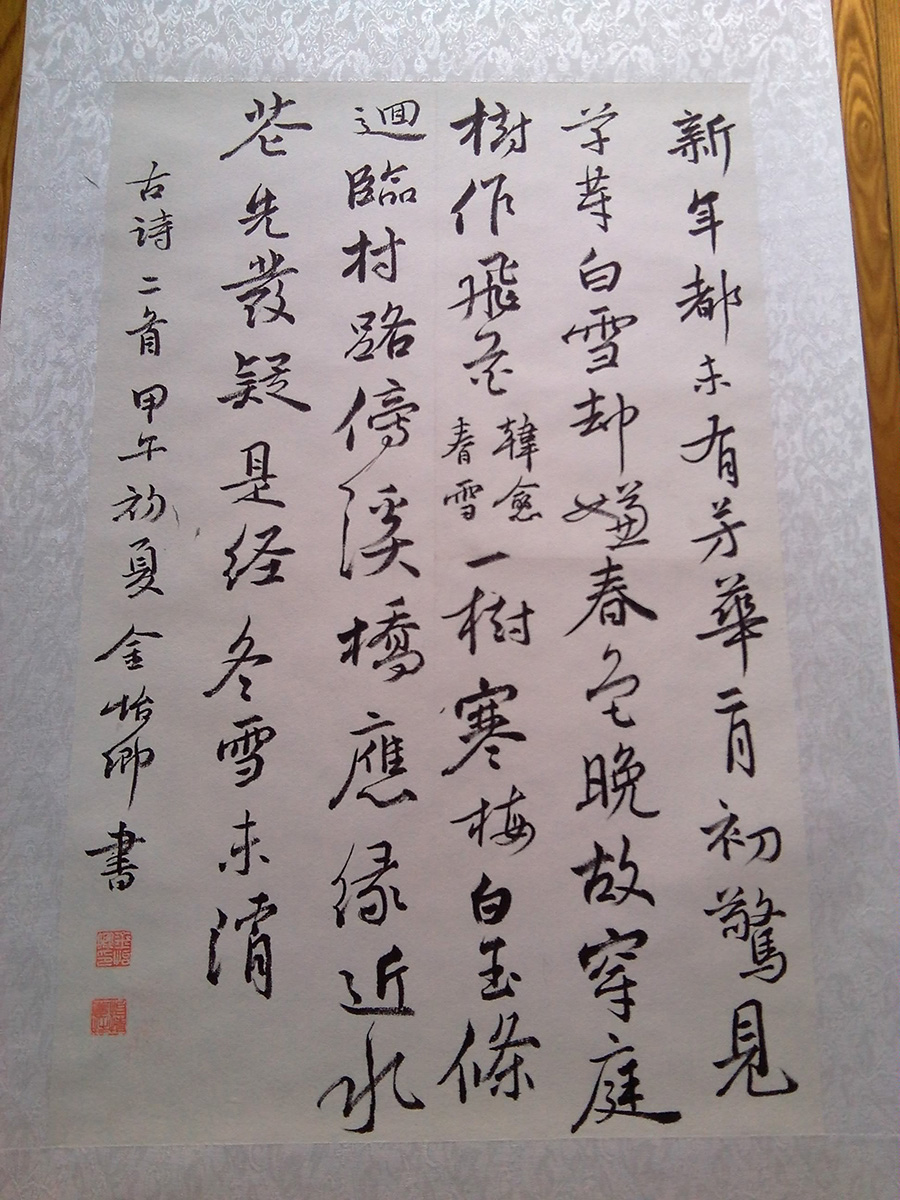 新年都未有芳華二月初驚見
草芽白雪却嫌春色晚故穿庭
樹作飛花韓愈春雪一樹寒梅白玉條
迴臨村路傍溪橋應缘近水
花先發疑是经冬雪未消
古诗二首甲午初夏金怡卿書